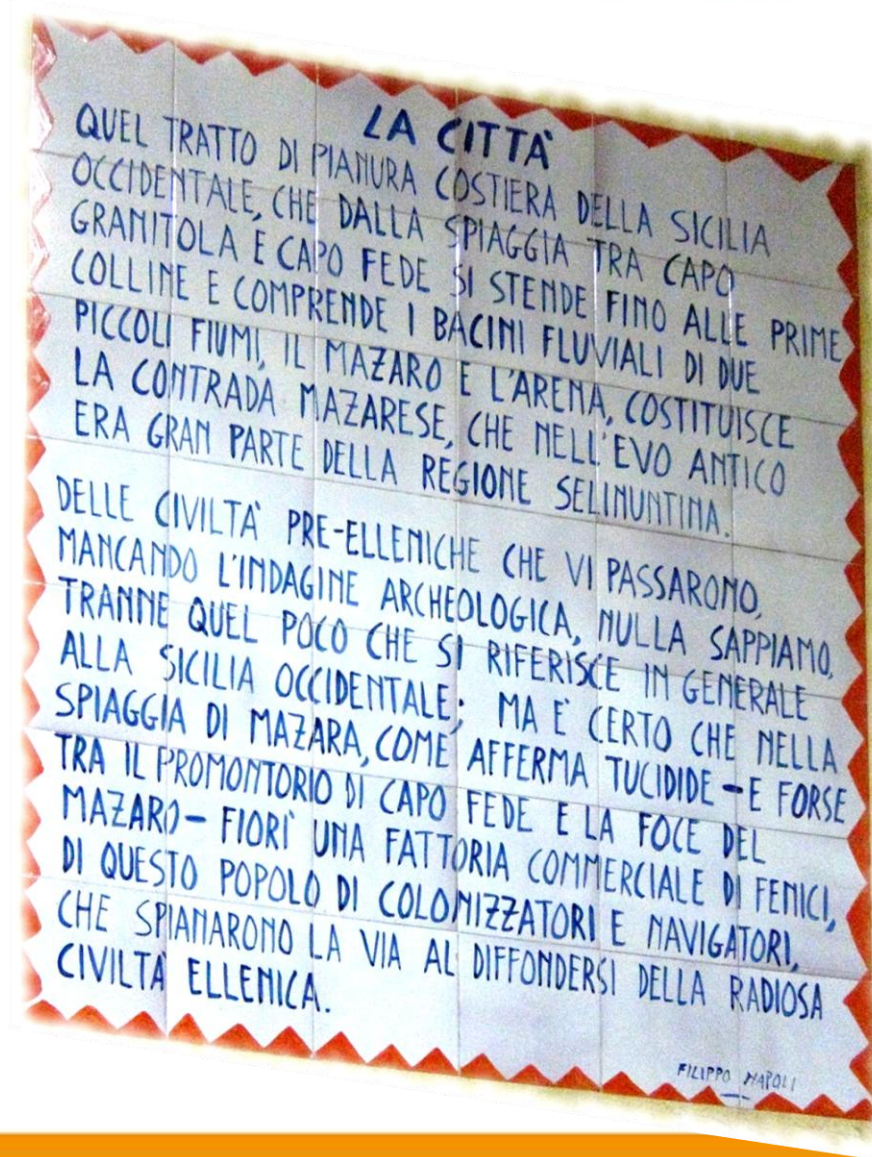 LA CITTÀ
QUEL TRATTO DI PIANURA COSTIERA DELLA SICILIA
OCCIDENTALE, CHE DALLA SPIAGGIA TRA CAPO
GRANITOLA E CAPO FEDE SI STENDE FINO ALLE PRIME
COLLINE E COMPRENDE I BACINI FLUVIALI DI DUE
PICCOLI FIUMI, IL MAZARO E L'ARENA, COSTITUISCE
LA CONTRADA MAZARESE, CHE NELL'EVO ANTICO
ERA GRAN PARTE DELLA REGIONE SELINUNTINA.
DELLE CIVILTÀ PRE-ELLENICHE CHE VI PASSARONO,
MANCANDO L'INDAGINE ARCHEOLOGICA, NULLA SAPPIAMO,
TRANNE QUEL POCO CHE SI RIFERISCE IN GENERALE
ALLA SICILIA OCCIDENTALE; MA E' CERTO CHE NELLA
SPIAGGIA DI MAZARA, COME AFFERMA TUCIDIDE - E FORSE
TRA IL PROMONTORIO DI CAPO FEDE E LA FOCE DEL
MAZARO - FIORÌ UNA FATTORIA COMMERCIALE DI FENICI,
DI QUESTO POPOLO DI COLONIZZATORI E NAVIGATORI,
CHE SPIANARONO LA VIA AL DIFFONDERSI DELLA RADIOSA
CIVILTÀ ELLENICA.
FILIPPO NAPOLI